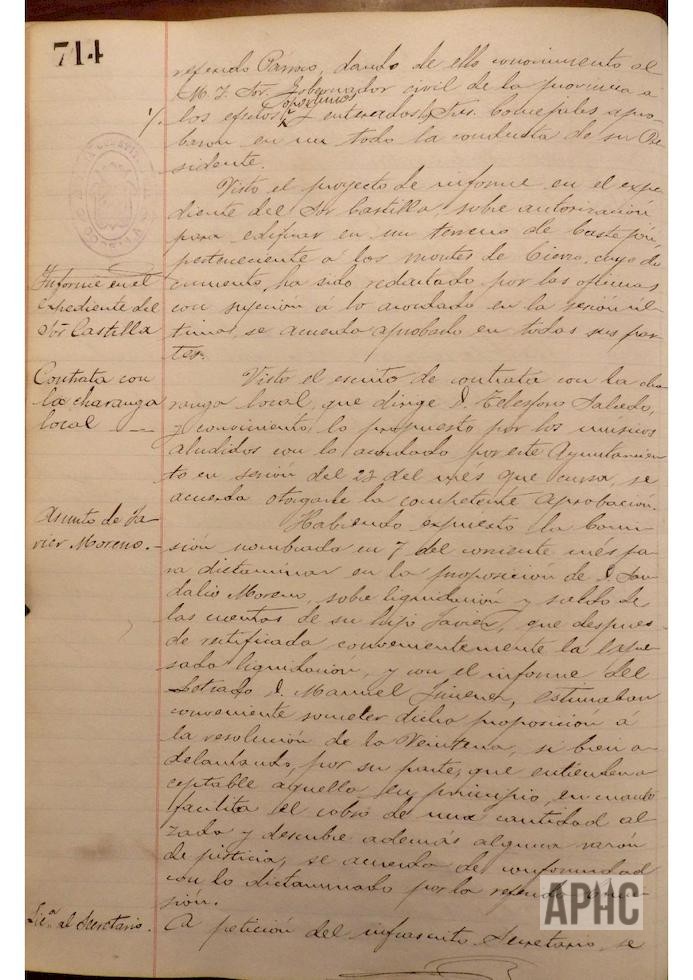 714
referido Párroco, dando de ello conocimiento al
M. I. Sor. Gobernador civil de la provincia a
oportunos
los efectos y enterados los Sres. Concejales apro-
baron en un todo la conducta de su Pre-
sidente.
Visto el proyecto de informe en el expe-
diente del Sor Castilla, sobre autorización
para edificar en un terreno de Castejón,
perteneciente a los montes de Cierzo, cuyo do
cumento, ha sido redactado por las oficinas
con sujeción á lo acordado en la sesión úl-
tima, se acuerda aprobarlo en todas sus par-
tes.
Informe en el
expediente del
Sor Castilla
Contrata con
la charanga
local
Visto el escrito de contrata con la cha
ranga local, que dirige D. Telesforo Salcedo,
y conviniendo lo propuesto por los músicos
aludidos con lo acordado por este Ayuntamien-
to en sesión del 23 del més que cursa, se
acuerda otorgarle la competente aprobación.
Asunto de Ja-
vier Moreno.-
Habiendo expuesto la Comi-
sión nombrada en 7 del corriente més pa-
ra dictaminar en la proposición de D. San-
dalio Moreno, sobre liquidación y saldo de
las cuentas de su hijo Javier, que despues
de rectificada convenientemente la expre-
sada liquidación, y con el informe del
Letrado D. Manuel Jimenez, estimaban
conveniente someter dicha proposición á
la resolución de la Veintena, si bien a-
delantando, por su parte, que entienden a
ceptable aquella en principio, en cuanto
facilita el cobro de una cantidad al
zada y descubre además alguna razón
de justicia, se acuerda de conformidad
con lo dictaminado por la referida Comi-
sión.
Lic.a al Secretario.
A petición del infrascrito Secretario, se
APHC